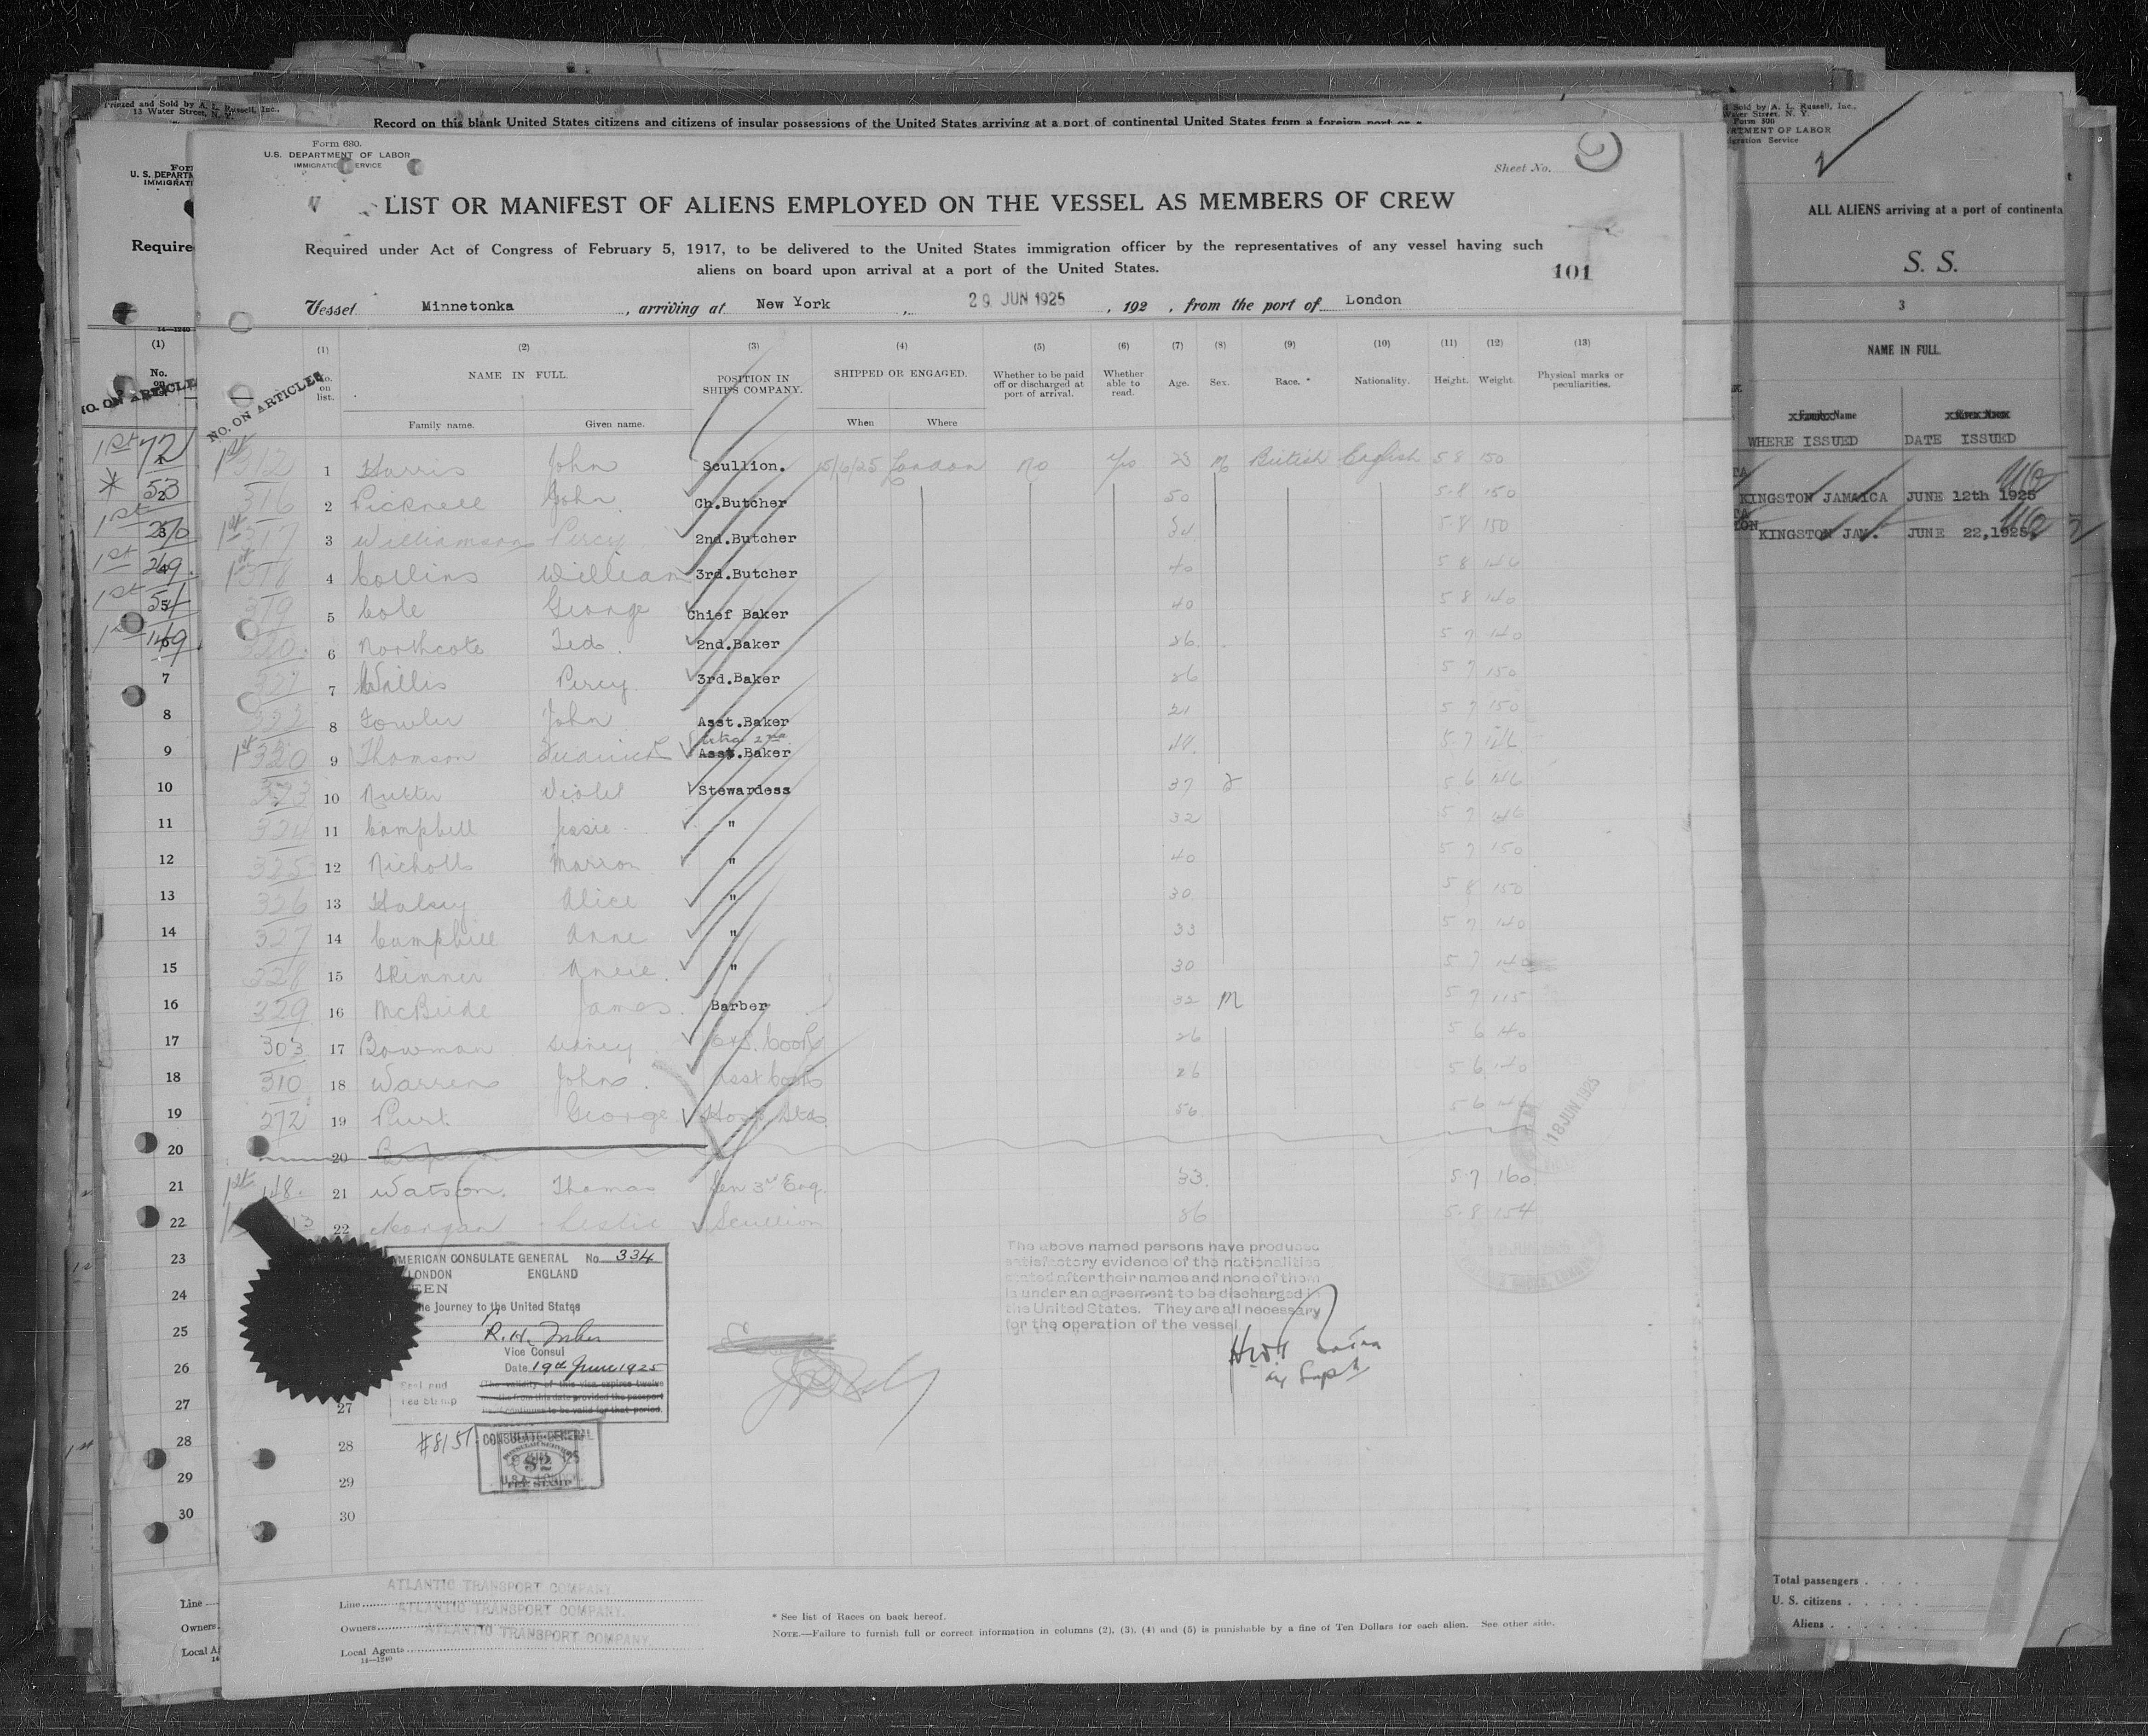 Printed and Sold by A. L. Russell, Inc.,
13 Water Street, N. Y.
Record on this blank United States citizens and citizens of insular possessions of the United States arriving at a port of continental United States from a foreign port or a
Form 680.
U.S. DEPARTMENT OF LABOR
IMMIGRATION SERVICE
Sheet No.
LIST OR MANIFEST OF ALIENS EMPLOYED ON THE VESSEL AS MEMBERS OF CREW
Required under Act of Congress of February 5, 1917, to be delivered to the United States immigration officer by the representatives of any vessel having such
aliens on board upon arrival at a port of the United States.
101
Vessel Minnetonka, arriving at New York, 29 JUN 1925, 192 , from the port of London
(1) (2) (3) (4) (5) (6) (7) (8) (9) (10) (11) (12) (13)
NO. ON ARTICLES
No. on list. NAME IN FULL. POSITION IN SHIP'S COMPANY. SHIPPED OR ENGAGED. Whether to be paid off or discharged at port of arrival. Whether able to read. Age. Sex. Race. * Nationality. Height. Weight. Physical marks or peculiarities.
Family name. Given name. When Where
1st 312 1 Harris John Scullion. 15/6/25 London No Yes 23 M British English 5 8 150
316 2 Picknell John Ch.Butcher 50 5.8 150
1st 317 3 Williamson Percy 2nd.Butcher 34 5.8 150
1st 318 4 Collins William 3rd.Butcher 40 5 8 146
319 5 Cole George Chief Baker 40 5 8 140
6 Northcote Ted. 2nd.Baker 26 5 7 140
7 Willis Percy 3rd.Baker 26 5 7 150
8 Fowler John Asst.Baker 21 5 7 150
1st 320 9 Thomson Asst.Baker 5 7 146
323 10 Rutter Violet Stewardess 37 5 6 146
324 11 Campbell Jessie " 32 5 7 146
325 12 Nicholls Marion " 40 5 7 150
326 13 Halsey Alice " 30 5 8 150
327 14 Campbell Anne " 33 5 7 140
328 15 Skinner " 30 5 7 140
329 16 McBride James Barber 32 M 5 7 115
303 17 Bowman Sidney Cook 26 5 6 140
310 18 Warren John Asst Cook 26 5 6 140
272 19 George Hosp. Std. 56 5 6 146
20
1st 148. 21 Watson. Thomas Jen 3rd Eng. 33. 5.7 160
22 Morgan Leslie Scullion 26 5.8 154
18 JUN 1925
AMERICAN CONSULATE GENERAL No. 334
LONDON ENGLAND
SEEN
the Journey to the United States
R. H.
Vice Consul
Date 19th June 1925
Seal and
Fee Stamp
(The validity of this visa expires twelve
months from this date provided the passport
continues to be valid for that period.
The above named persons have produced
satisfactory evidence of the nationalities
stated after their names and none of them
is under an agreement to be discharged in
the United States. They are all necessary
for the operation of the vessel
27
28 #8151
CONSULATE GENERAL
$2
FEE STAMP
29
30
Line ATLANTIC TRANSPORT COMPANY.
Owners ATLANTIC TRANSPORT COMPANY.
Local Agents ATLANTIC TRANSPORT COMPANY
14—1240
* See list of Races on back hereof.
NOTE.—Failure to furnish full or correct information in columns (2), (3), (4) and (5) is punishable by a fine of Ten Dollars for each alien. See other side.
Form
U. S. DEPARTM
IMMIGRATI
Require
14—1240
(1)
No. on
NO. ON ARTICLE
1st 72
* 53
1st 270
1st 269
1st 54
149
7
8
9
10
11
12
13
14
15
16
17
18
19
20
21
22
23
24
25
26
27
28
29
30
Line
Owners
Local A
14
Sold by A. L. Russell, Inc.,
Water Street, N. Y.
Form 500
RTMENT OF LABOR
igration Service
ALL ALIENS arriving at a port of continenta
S. S.
3
NAME IN FULL.
Family Name Given Name
WHERE ISSUED DATE ISSUED
KINGSTON JAMAICA JUNE 12th 1925
KINGSTON JAM. JUNE 22,1925
Total passengers . . . .
U. S. citizens . . . . .
Aliens . . . . . . .